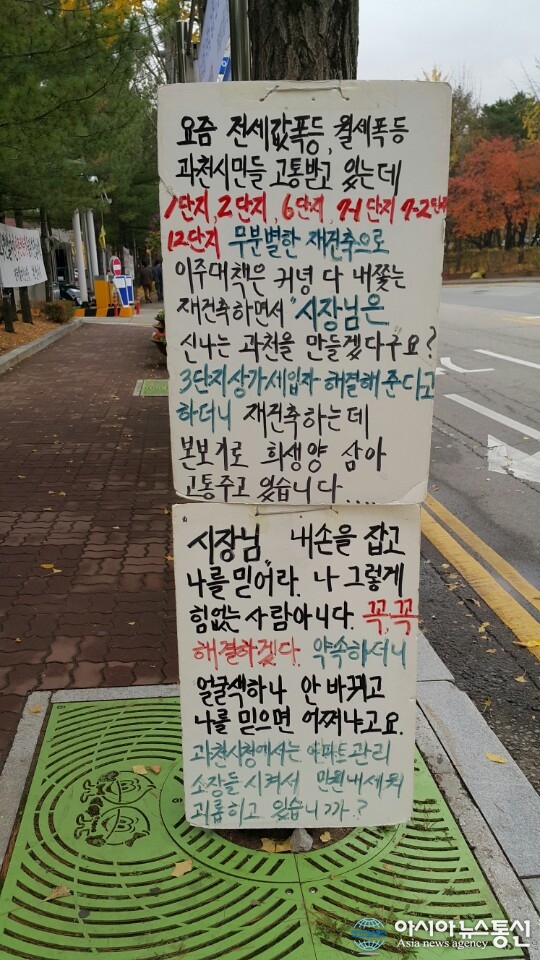 요즘 전세값폭등, 월세폭등
과천시민들 고통받고 있는데
1단지, 2단지, 6단지, 7-1단지 7-2단지
12단지 무분별한 재건축으로
이주대책은 커녕 다 내쫓는
재건축하면서 "시장님은
신나는 과천을 만들겠다구요?
3단지상가세입자 해결해준다고
하더니 재건축하는데
본보기로 희생양 삼아
고통주고 있습니다....
시장님, 내손을 잡고
나를 믿어라. 나 그렇게
힘없는 사람아니다. 꼭, 꼭
해결하겠다. 약속하더니
얼굴색하나 안 바뀌고
나를 믿으면 어쩌냐고요.
과천시청에서는 아파트관리
소장들 시켜서 만원내세워
괴롭히고 있습니까?
아시아뉴스통신
Asia news agency